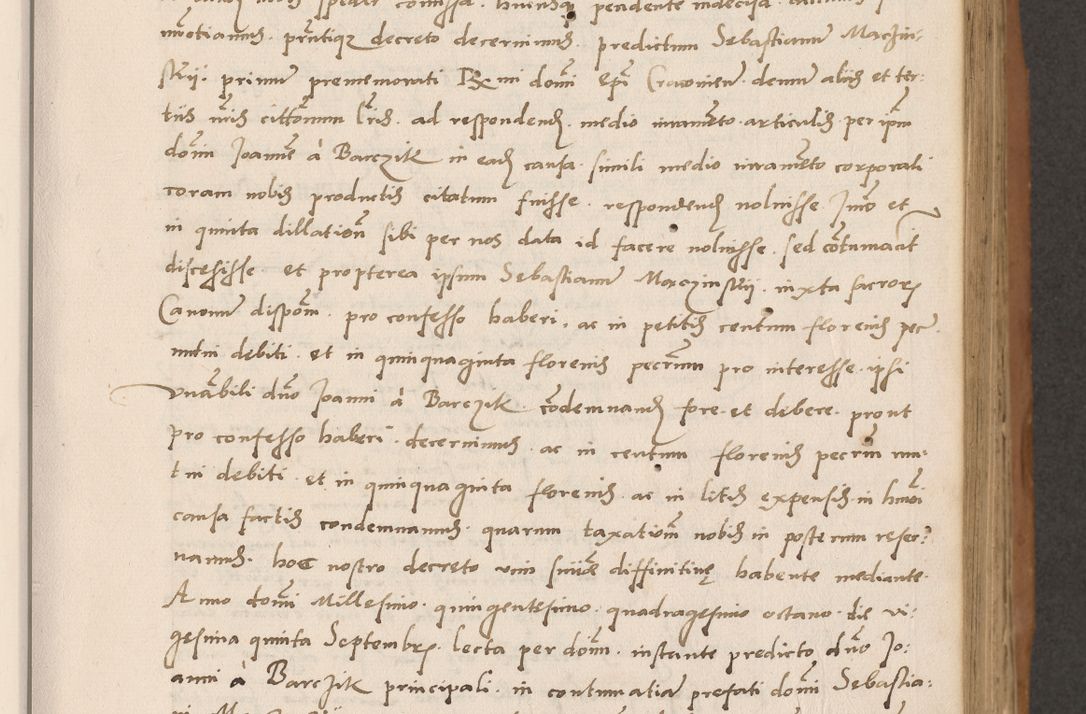 nuncianus. prntiqz decreto decernimus. predictum Sebastianum Maczin-
skii. primum prememorati Rx mi domi epi Cracovien. demum aliis et ter:
tiis nris citationum lris. ad respondend. medio iuramento articulis per ipm
domi Joanne à Barczik in ead causa. simili medio iuramento corporali
coram nobis productis citatum fuisse. respondend noluisse. Imo et
in quinta dillation sibi per nos data id facere noluisse. sed contumacit
discesisse. et propterea ipsum Sebastianum Maczinskii. iuxta sacror
Canonum dispom. pro confesso haberi. ac in petitis centum florenis pec
mutui debiti. et in quinquaginta florenis pecrum pro interesse. ipsi
vnabili dno Joanni à Barczik condemnand fore. et debere. prout
pro confesso haberi. decernimus. ac in centum florenis pecrum mu-
tui debiti. et in quinquaginta florenis. ac in litis expensis in hmoi
causa factis condemnamus. quarum taxation nobis in posterum reser:
vamus. hoc nostro decreto vim sniae diffinitive habente mediante.
Anno domi Millesimo. quingentesimo. quadragesimo octavo. die vi:
gesima quinta Septembr. lecta per dom. instante predicto dno Jo:
anni à Barczik principali. in contumatiam prefati domi Sebastia: